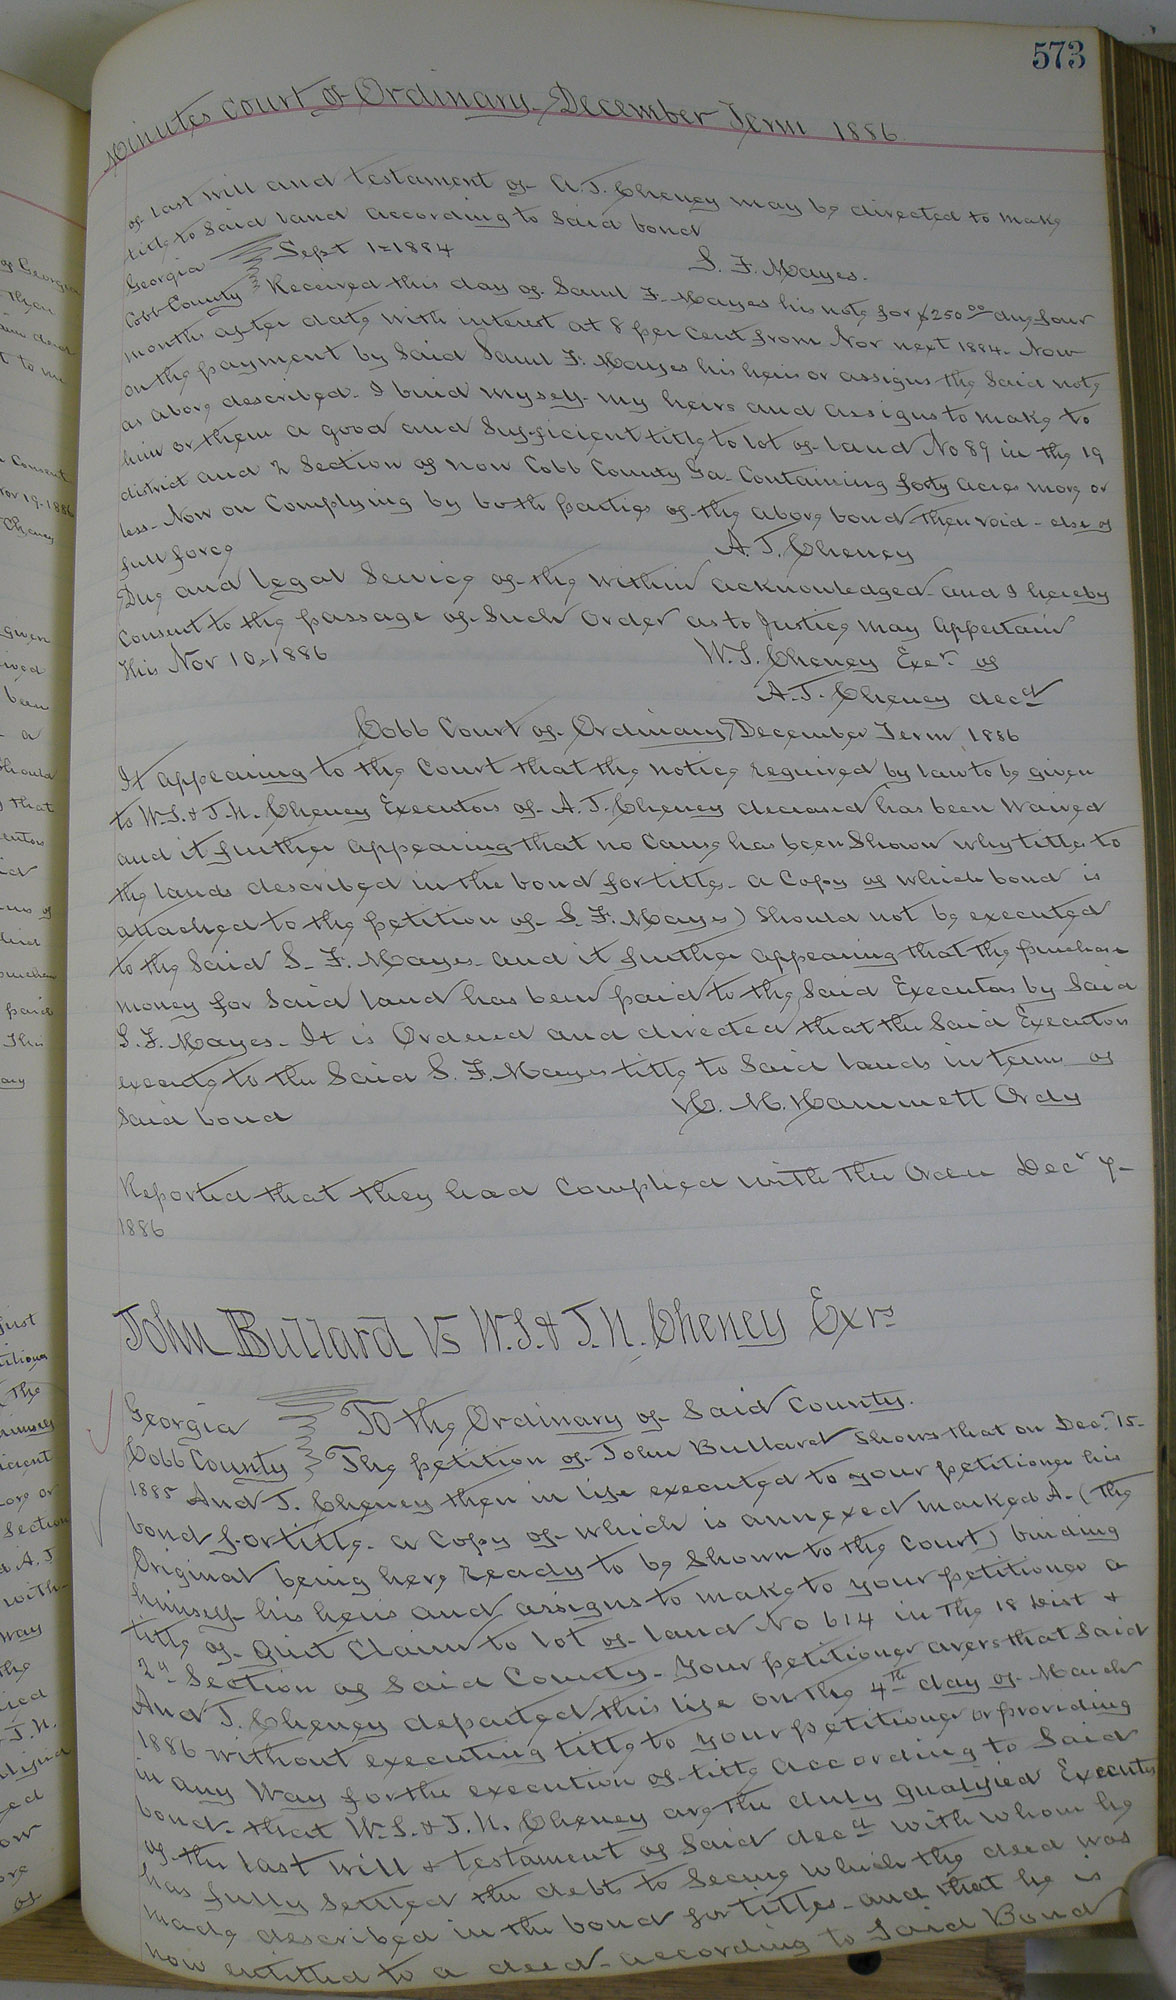 573
Minutes Court of Ordinary December Term 1886
of last will and testament of A.J. Cheney may be directed to make
title to said land according to said bond
S. F. Mayes.
Georgia Sept 1 - 1884
Cobb County Received this day of Saml F. Mayes his note for $250.00 due four
months after date with interest at 8 per cent from Nov next 1884. Now
on the payment by said Saml F. Mayes his heirs or assigns the said note
as above described. I bind myself my heirs and assigns to make to
him or them a good and sufficient title to lot of land No 89 in the 19
district and 2 Section of now Cobb County Ga. Containing forty acres more or
less. Now on Complying by both parties of the above bond then void - else of
full force
A. J. Cheney
Due and legal Service of the within acknowledged and I hereby
Consent to the passage of such Order as to Justice may appertain
This Nov 10, 1886
W. S. Cheney Exer. of
A. J. Cheney decd
Cobb Court of Ordinary December Term 1886
It appearing to the Court that the notice required by law to be given
to W.S. & J.N. Cheney Executors of A.J. Cheney deceased has been Waived
and it further appearing that no Cause has been Shown why title to
the lands described in the bond for title - a Copy of which bond is
attached to the petition of S. F. Mayes) should not be executed
to the said S. F. Mayes and it further appearing that the purchase
money for said land has been paid to the said Executors by Said
S. F. Mayes. It is Ordered and directed that the said Executors
execute to the said S. F. Mayes title to said lands in terms of
said bond
H. M. Hammett Ordy
Reported that they had Complied with the Order Decr 7-
1886
John Bullard Vs W.S. & J.N. Cheney Exrs
Georgia To the Ordinary of said County.
Cobb County The petition of John Bullard Shows that on Dec. 15-
1885 And J. Cheney then in life executed to your petitioner his
bond for title - a Copy of which is annexed marked A. (The
Original being here ready to be Shown to the Court) binding
himself his heirs and assigns to make to your petitioner a
title of quit Claim to lot of land No 614 in the 18 Dist &
2d Section of said County. Your petitioner avers that said
And J. Cheney departed this life on the 4th day of March
1886 without executing title to your petitioner or providing
in any way for the execution of title according to said
bond. that W.S. & J.N. Cheney are the duly qualified Executors
of the last will & testament of said decd with whom he
has fully settled the debt to secure which the deed was
made described in the bond for titles and that he is
now entitled to a deed according to said Bond